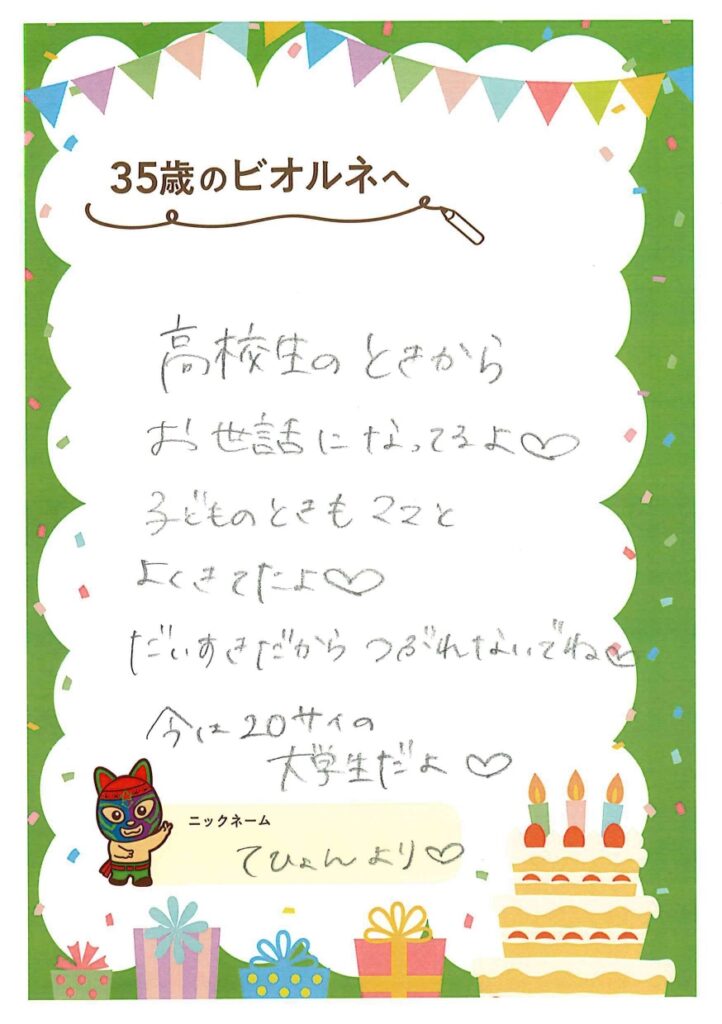 35歳のビオルネへ
高校生のときから
お世話になってるよ♡
子どものときもママと
よくきてたよ♡
だいすきだからつぶれないでね♡
今は20サイの
大学生だよ♡
ニックネーム
てひょんより♡